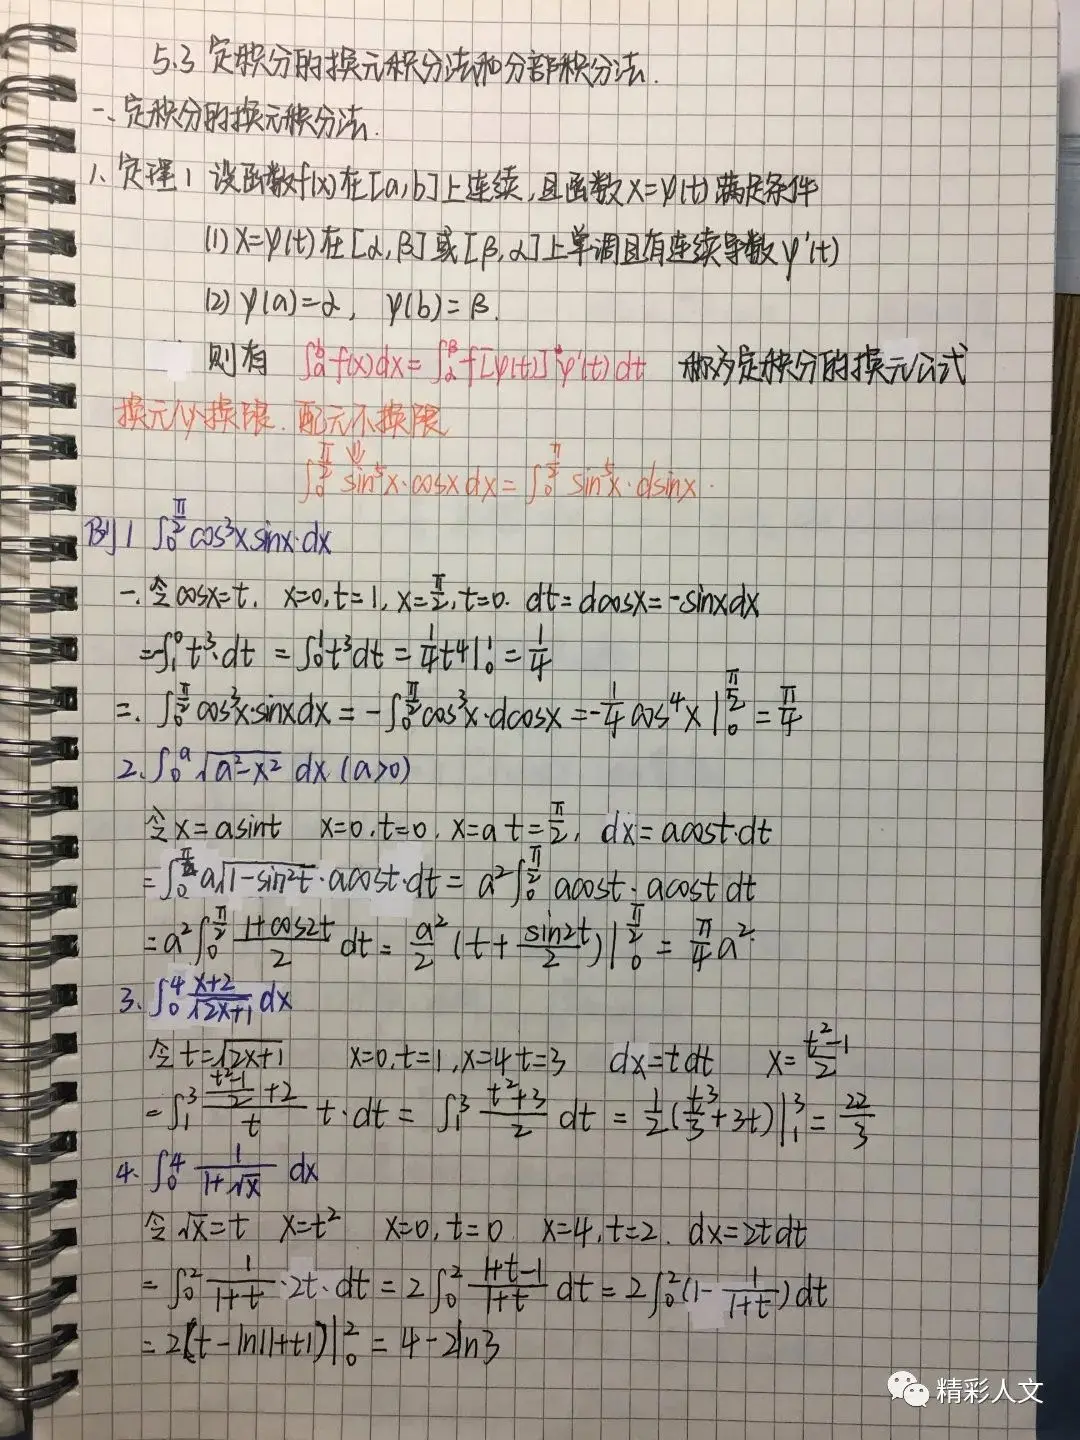 5.3 定积分的换元积分法和分部积分法.
一、定积分的换元积分法.
1、定理1 设函数f(x)在[a,b]上连续,且函数x=ψ(t)满足条件
(1) x=ψ(t)在[α,β]或[β,α]上单调且有连续导数ψ'(t)
(2) ψ(a)=α, ψ(b)=β.
则有 ∫ₐᵇf(x)dx=∫_α^β f[ψ(t)]·ψ'(t)dt 称为定积分的换元公式
换元必换限.配元不换限
∫₀^{π/2} sin⁵x·cosxdx=∫₀^{π/2} sin⁵x·dsinx.
例1 ∫₀^{π/2}cos³x sinx·dx
一.令cosx=t. x=0,t=1,x=π/2,t=0. dt=dcosx=-sinxdx
=-∫₁⁰t³·dt =∫₀¹t³dt=1/4t4|₀¹=1/4
二.∫₀^{π/2}cos³x·sinxdx=-∫₀^{π/2}cos³x·dcosx=-1/4cos⁴x|₀^{π/2}=π/4
2.∫₀ᵃ√(a²-x²) dx (a>0)
令x=asint x=0,t=0, x=a t=π/2, dx=acost·dt
=∫₀^{π/2}a√(1-sin²t)·acost·dt=a²∫₀^{π/2} acost·acost dt
=a²∫₀^{π/2} (1+cos2t)/2 dt=a²/2(t+sin2t/2)|₀^{π/2}=π/4a².
3.∫₀⁴(x+2)/√(2x+1)dx
令t=√(2x+1) x=0,t=1,x=4t=3 dx=tdt x=(t²-1)/2
=∫₁³((t²-1)/2+2)/t t·dt=∫₁³(t²+3)/2 dt=1/2(t³/3+3t)|₁³=22/3
4.∫₀⁴1/(1+√x) dx
令√x=t x=t² x=0,t=0 x=4,t=2. dx=2tdt
=∫₀²1/(1+t)·2t·dt=2∫₀²(1+t-1)/(1+t)dt=2∫₀²(1-1/(1+t))dt
=2(t-ln|1+t|)|₀²=4-2ln3
精彩人文